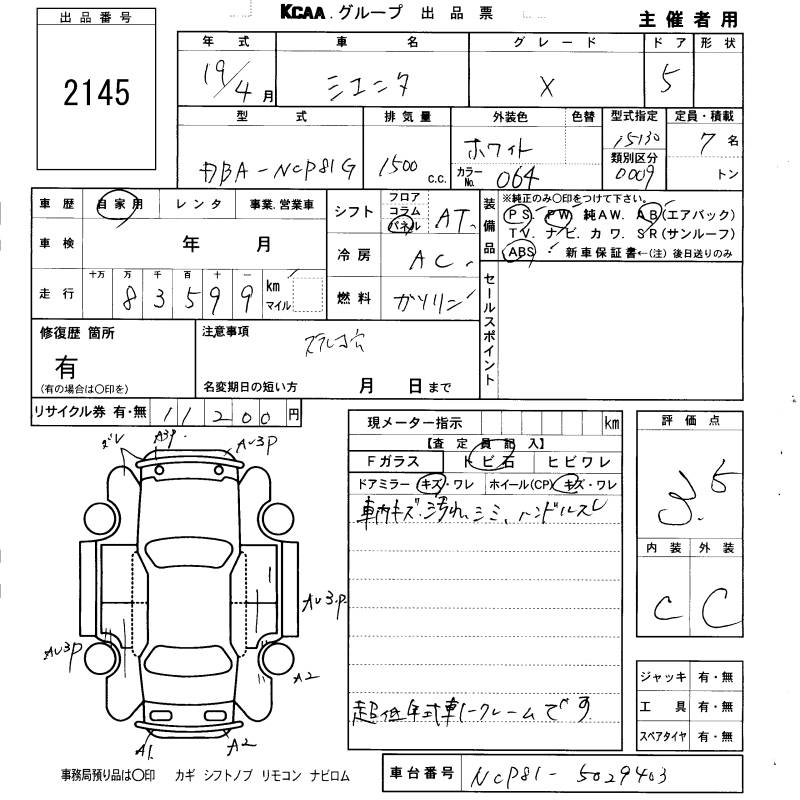 KCAA.グループ 出品票
主催者用
出品番号
2145
年式 車名 グレード ドア 形状
19/4月 シエンタ X 5
型式 排気量 外装色 色替 型式指定 定員・積載
DBA-NCP81G 1500 c.c. ホワイト 15130 7名
カラーNo. 064 類別区分 0009 トン
車歴 自家用 レンタ 事業.営業車
車検 年 月
走行 十万 万 千 百 十 一 km マイル
83599
シフト フロア コラム パネル AT
冷房 AC
燃料 ガソリン
装備品
※純正のみ〇印をつけて下さい。
PS. PW. 純AW. AB(エアバック)
TV. ナビ. カワ. SR(サンルーフ)
ABS 新車保証書←(注)後日送りのみ
セールスポイント
修復歴 箇所
有
(有の場合は〇印を)
注意事項
名変期日の短い方 月 日まで
リサイクル券 有・無 11200円
現メーター指示 km
【査定員記入】
Fガラス トビ石 ヒビワレ
ドアミラー キズ・ワレ ホイール(CP) キズ・ワレ
車内キズ.汚れ、シミ、ハンドルスレ
超低年式車ノークレームです
評価点
3.5
内装 外装
C C
A3P AU3P
AU3P
AU3P
A2
A1 A2
ジャッキ 有・無
工具 有・無
スペアタイヤ 有・無
事務局預り品は〇印 カギ シフトノブ リモコン ナビロム
車台番号 NCP81-5029403